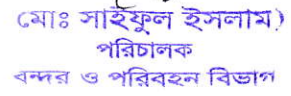 মোঃ সাইফুল ইসলাম)
পরিচালক
বন্দর ও পরিবহন বিভাগ